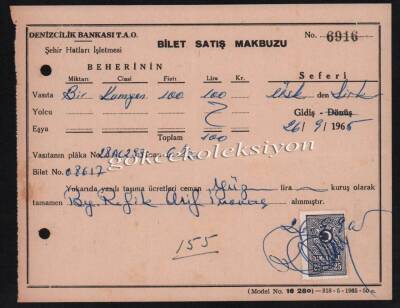 DENİZCİLİK BANKASI T.A.O.
Şehir Hatları İşletmesi
BİLET SATIŞ MAKBUZU
No. 6916
BEHERİNİN
Miktarı Cinsi Fiatı Lira Kr. Seferi
Vasıta Bir Kamyon 100 100 Üsk den Sirk
Yolcu Gidiş - Dönüş
Eşya 26/9/1965
Toplam 100
Vasıtanın plâka No.
gökçekoleksiyon
Bilet No. 08617
Yukarıda yazılı taşıma ücretleri ceman Yüz lira kuruş olarak
tamamen By. Refik Arif alınmıştır.
155
25
(Model No. 16 280) — 318 - 5 - 1965 - 50 c.